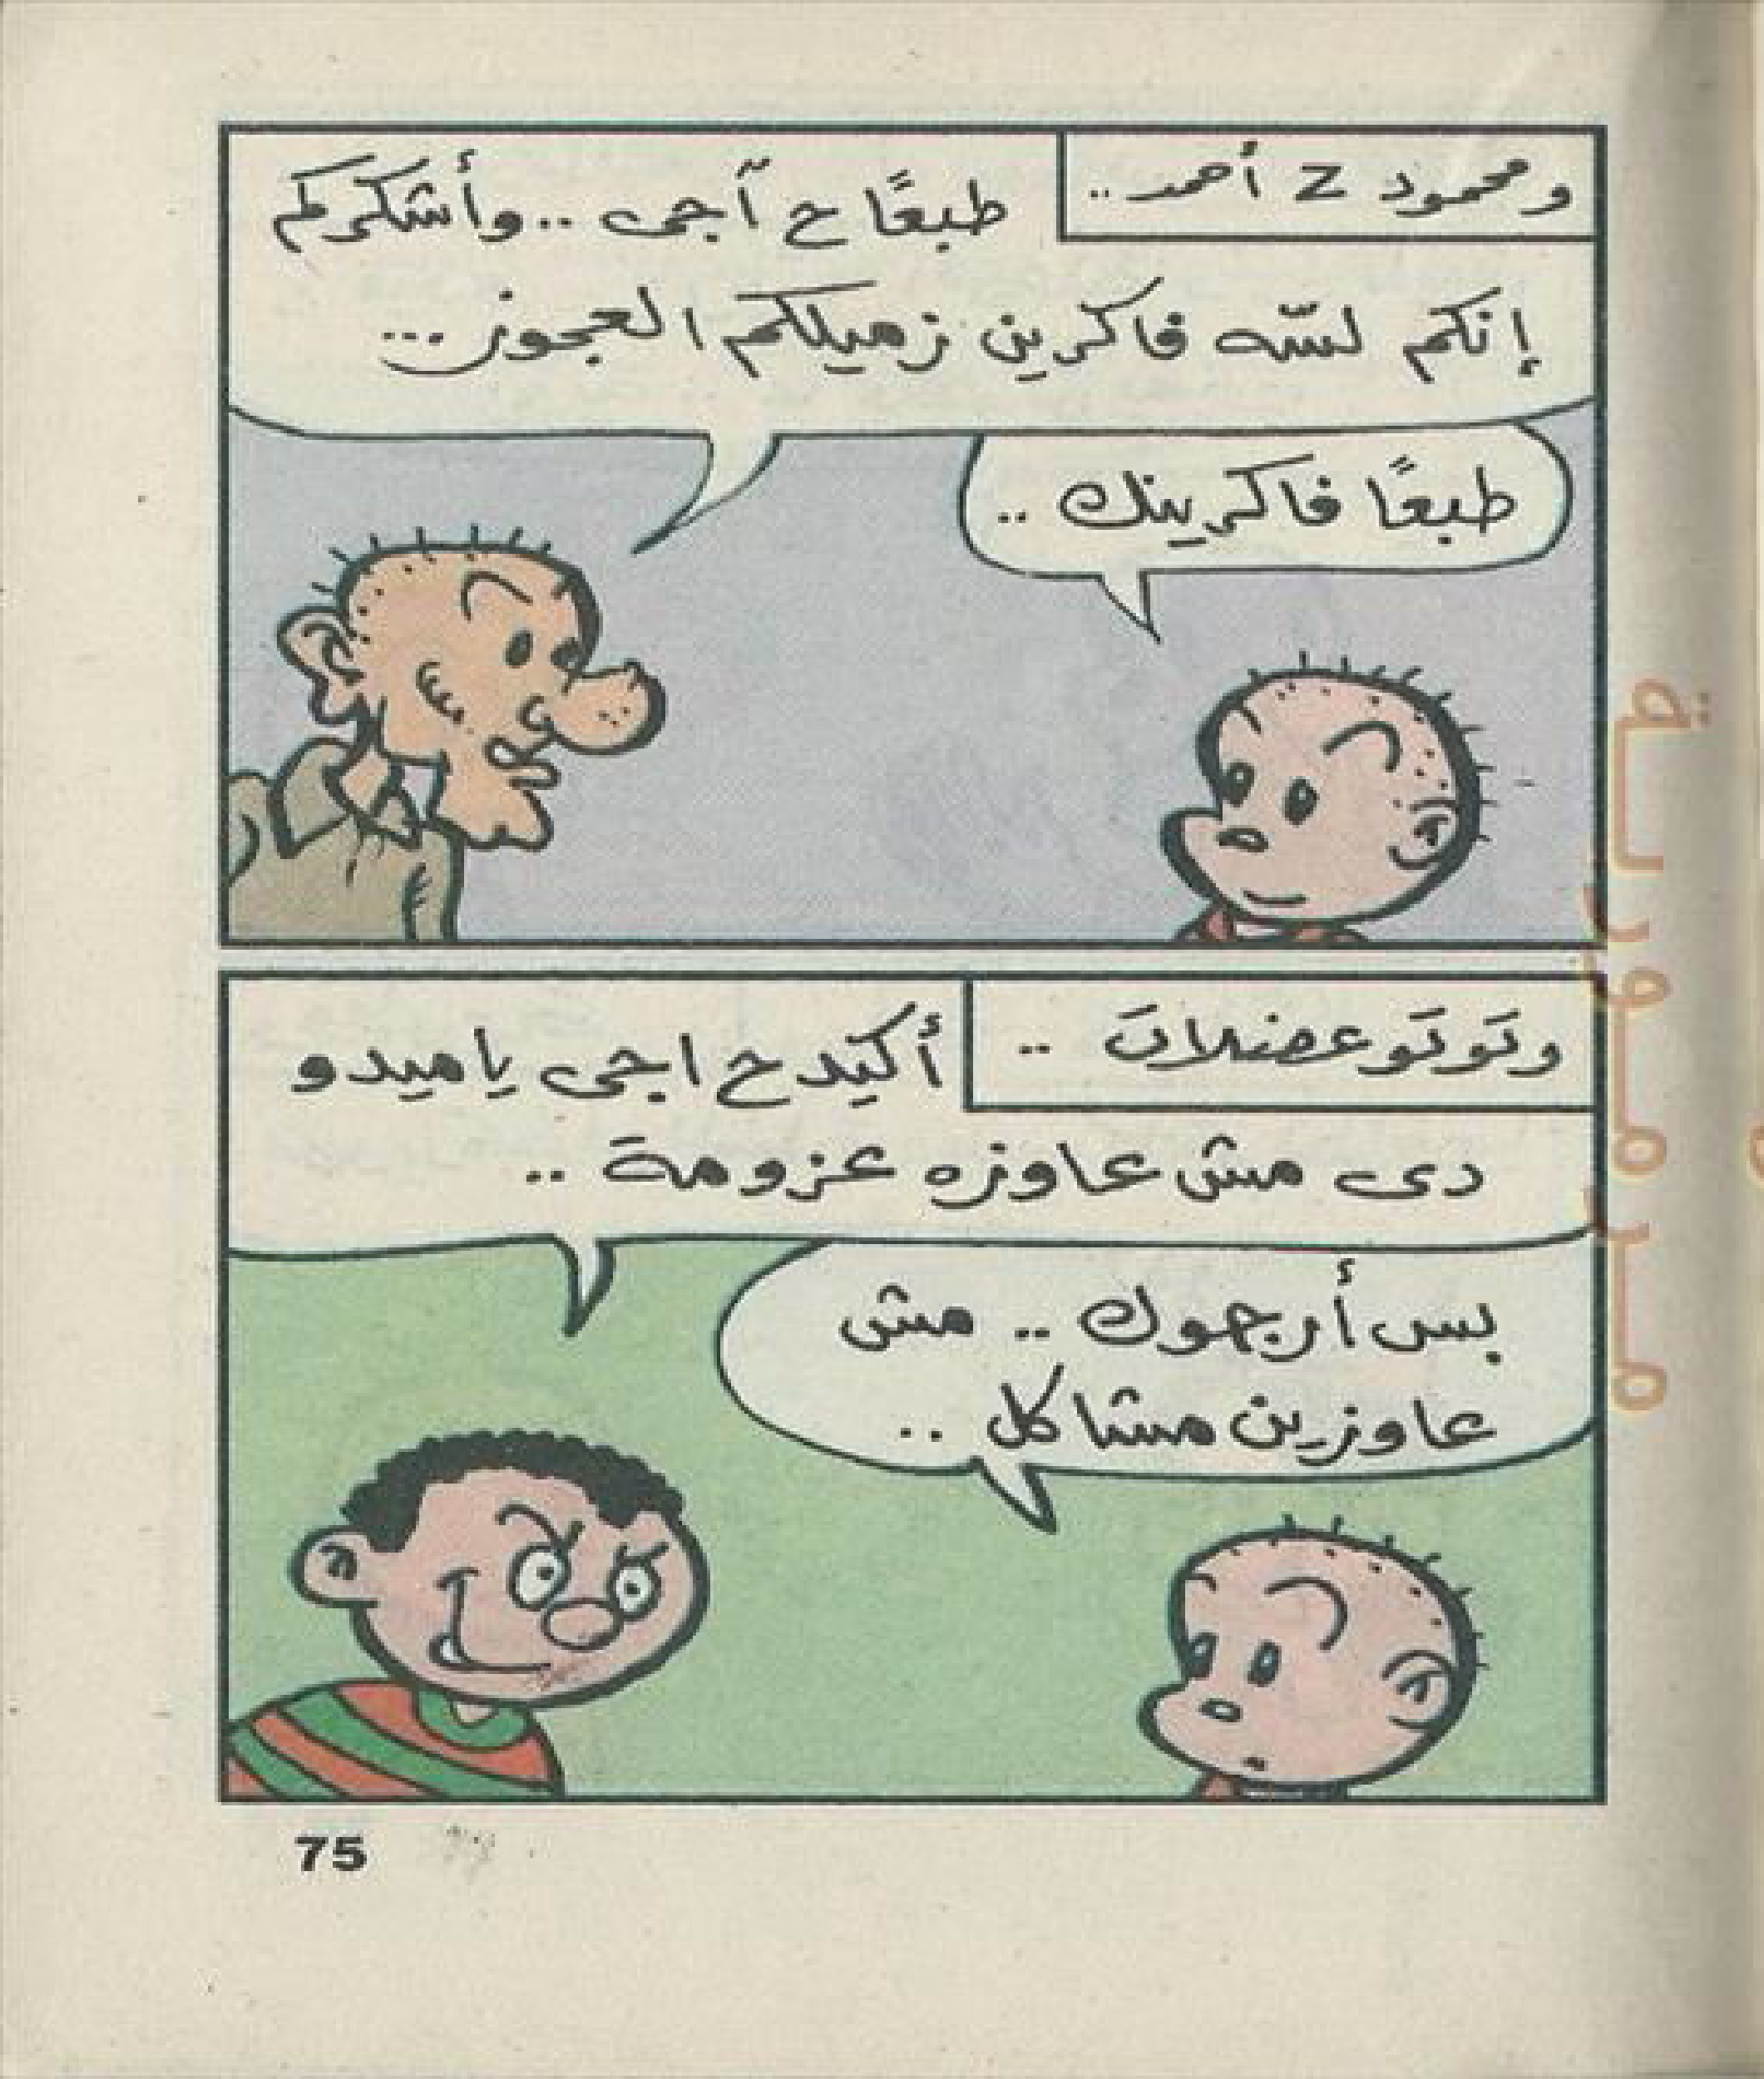 ومحمود Z أحمد ..
طبعًا ح آجى .. وأشكركم
إنكم لسّه فاكرين زميلكم العجوز ...
طبعًا فاكرينك ..
وتوتو عضلات ..
أكيد ح اجى ياميدو
دى مش عاوزه عزومة ..
بس أرجوك .. مش
عاوزين مشاكل ..
75
مرمورية